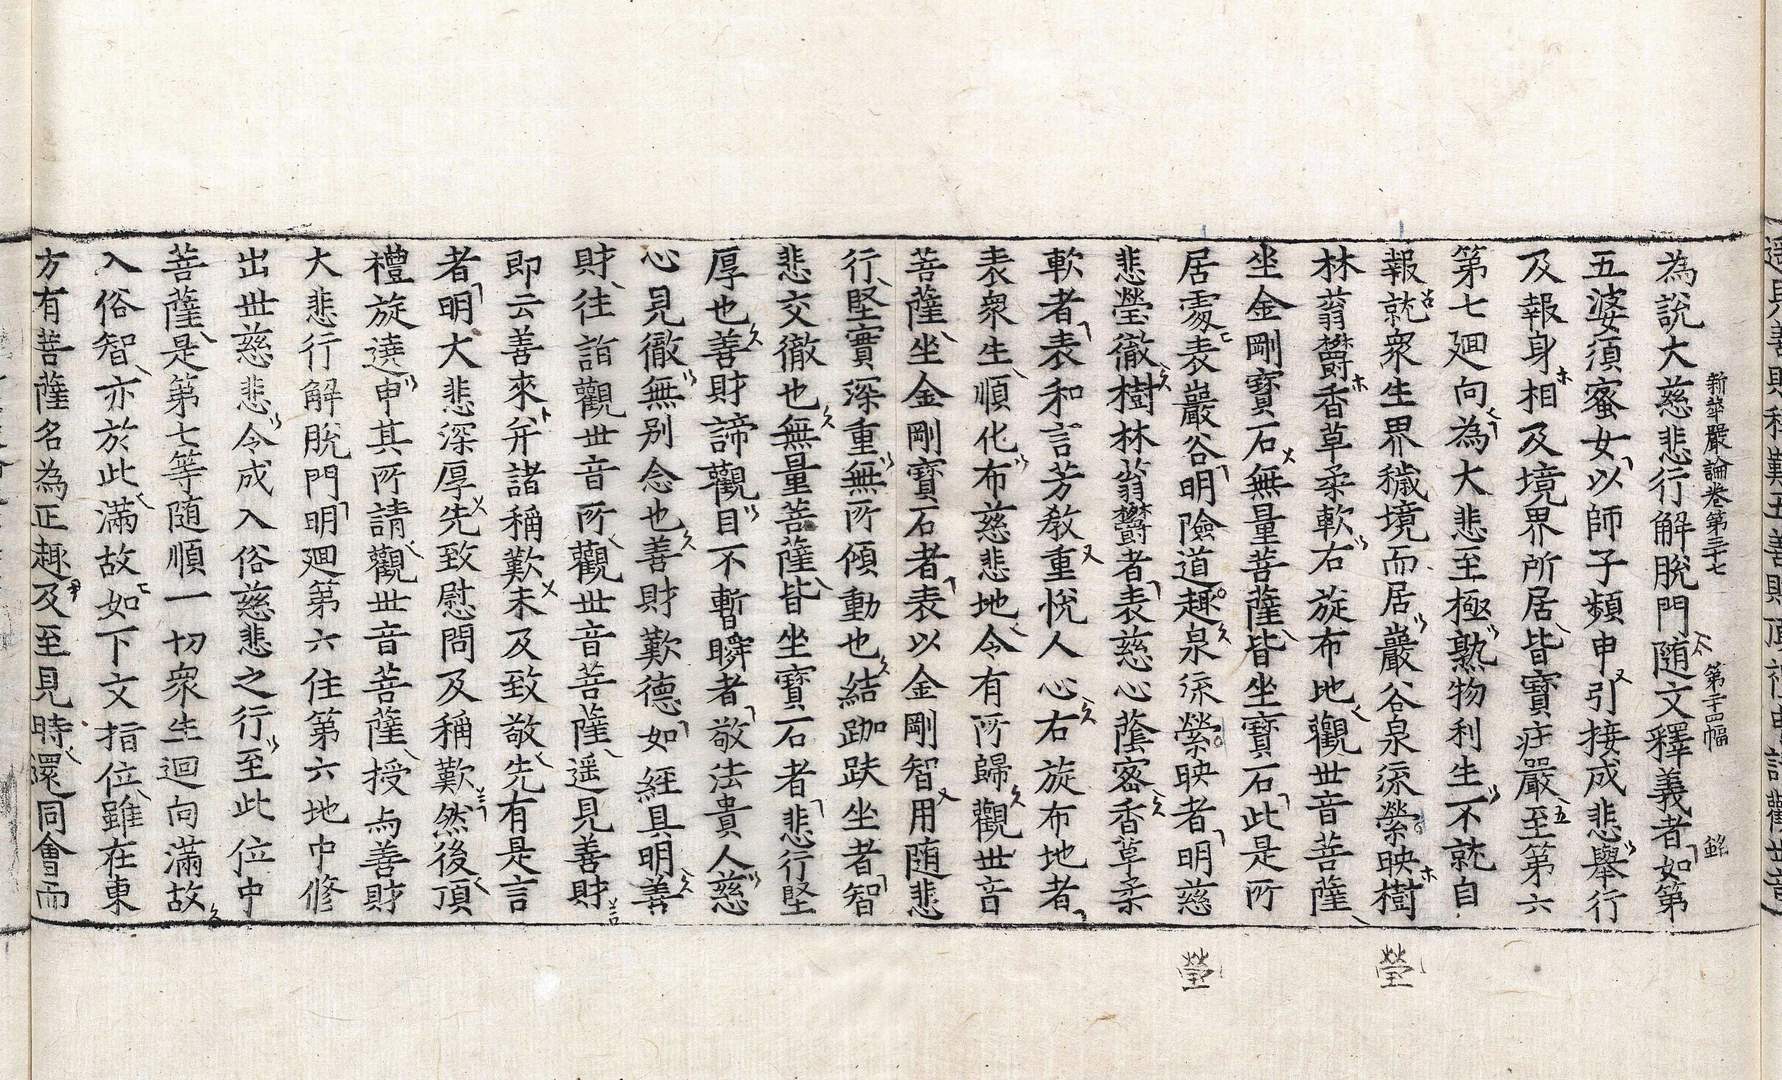 新華嚴論卷第三十七　第二十四幅　銘
為說大慈悲行解脫門随文釋義者如第
五婆須蜜女以師子頻申引接成悲舉行
及報身相及境界所居皆寶莊嚴至第六
第七廻向為大悲至極熟物利生不就自
報就衆生界穢境而居巖谷泉流縈映樹
林蓊欝香草柔軟右旋布地觀世音菩薩
坐金剛寶石無量菩薩皆坐寶石此是所
居處表巖谷明險道趣泉流縈映者明慈
悲瑩徹樹林蓊欝者表慈心蔭密香草柔
軟者表和言芳教重悅人心右旋布地者
表衆生順化布慈悲地令有所歸觀世音
菩薩坐金剛寶石者表以金剛智用随悲
行堅實深重無所傾動也結跏趺坐者智
悲交徹也無量菩薩皆坐寶石者悲行堅
厚也善財諦觀目不暫瞬者敬法貴人慈
心見徹無别念也善財歎德如經具明善
財往詣觀世音所觀世音菩薩遥見善財
即云善來并諸稱歎未及致敬先有是言
者明大悲深厚先致慰問及稱歎然後頂
禮旋遶申其所請觀世音菩薩授与善財
大悲行解脫門明廻第六住第六地中修
出世慈悲令成入俗慈悲之行至此位中
菩薩是第七等随順一切衆生廻向滿故
入俗智亦於此滿故如下文指位雖在東
方有菩薩名為正趣及至見時還同會而
瑩
瑩